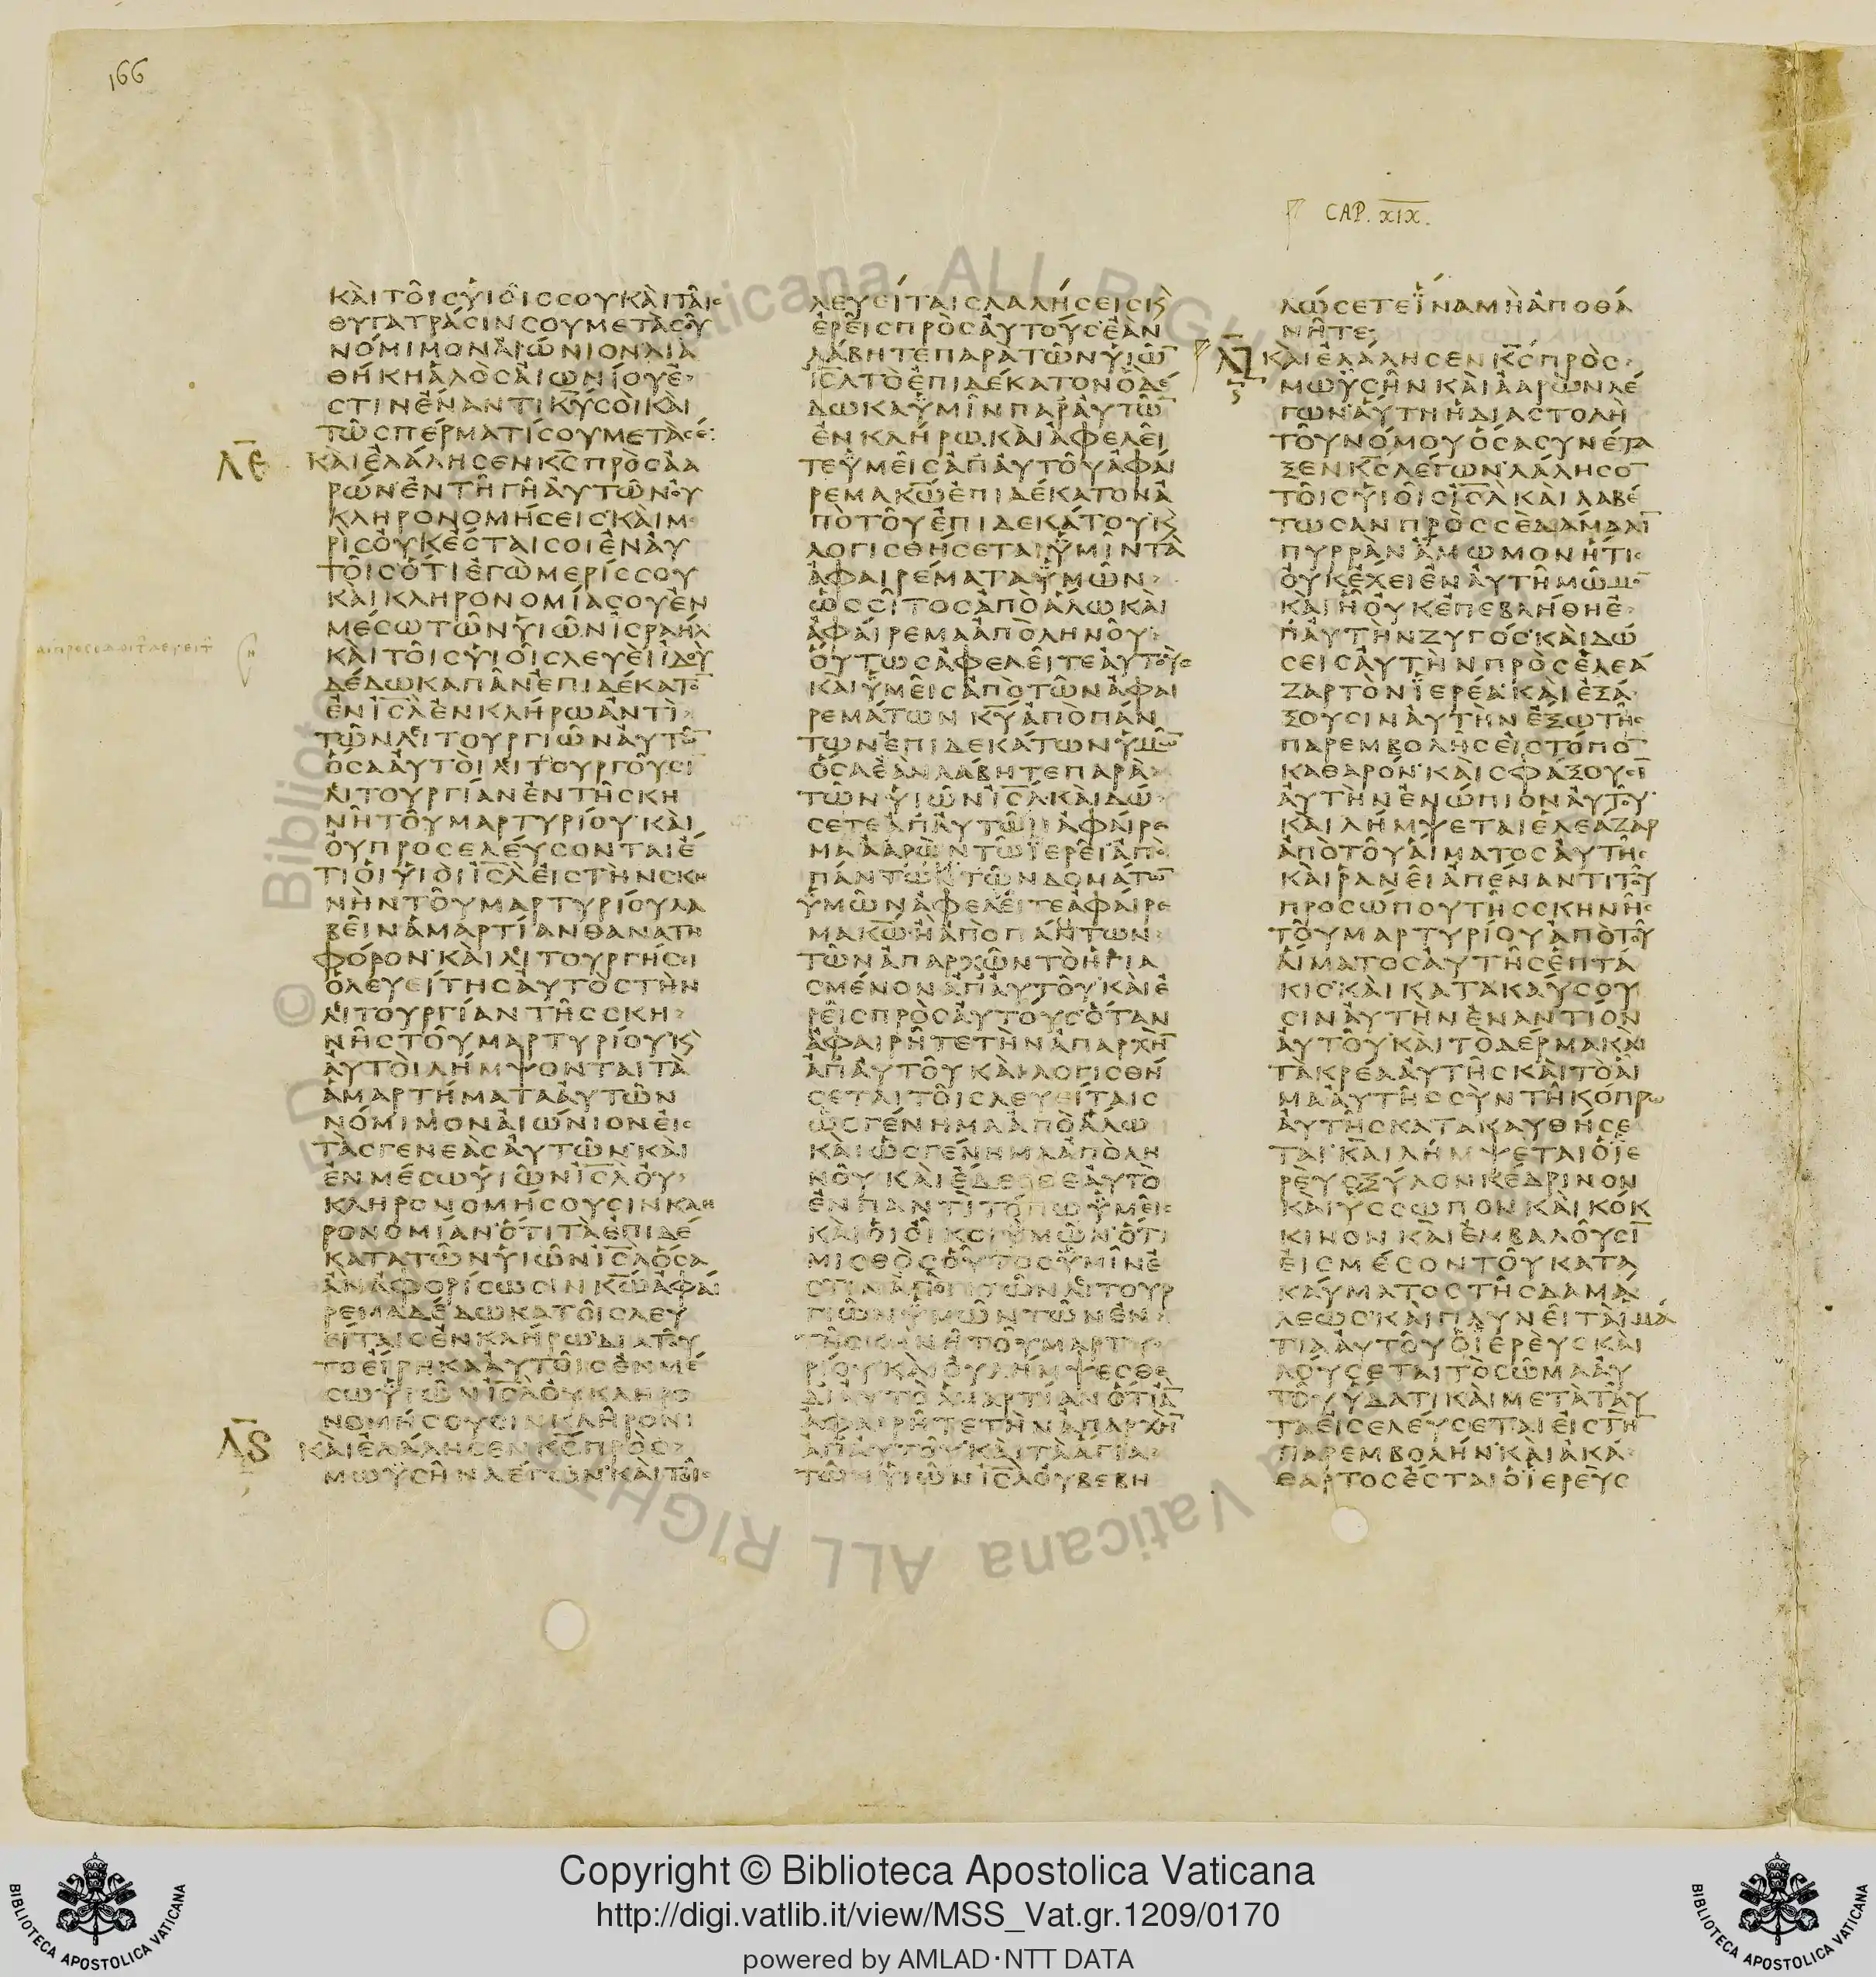 166
CAP. XIX.
ΚΑΙΤΟΙΣΥΙΟΙΣΣΟΥΚΑΙΤΑΙΣ
ΘΥΓΑΤΡΑΣΙΝΣΟΥΜΕΤΑΣΟΥ
ΝΟΜΙΜΟΝΑΙΩΝΙΟΝΔΙΑ
ΘΗΚΗΑΛΟΣΑΙΩΝΙΟΥΕ
ΣΤΙΝΕΝΑΝΤΙΚΥΣΟΙΚΑΙ
ΤΩΣΠΕΡΜΑΤΙΣΟΥΜΕΤΑΣΕ
ΛΕ
ΚΑΙΕΛΑΛΗΣΕΝΚΣΠΡΟΣΑΑ
ΡΩΝΕΝΤΗΓΗΑΥΤΩΝΟΥ
ΚΛΗΡΟΝΟΜΗΣΕΙΣΚΑΙΜΕ
ΡΙΣΟΥΚΕΣΤΑΙΣΟΙΕΝΑΥ
ΤΟΙΣΟΤΙΕΓΩΜΕΡΙΣΣΟΥ
ΚΑΙΚΛΗΡΟΝΟΜΙΑΣΟΥΕΝ
ΜΕΣΩΤΩΝΥΙΩΝΙΣΡΑΗΛ
ΚΑΙΤΟΙΣΥΙΟΙΣΛΕΥΕΙΙΔΟΥ
ΔΕΔΩΚΑΠΑΝΕΠΙΔΕΚΑΤΟ
ΕΝΙΣΛΕΝΚΛΗΡΩΑΝΤΙ
ΤΩΝΛΙΤΟΥΡΓΙΩΝΑΥΤΩ
ΟΣΑΑΥΤΟΙΛΙΤΟΥΡΓΟΥΣΙ
ΛΙΤΟΥΡΓΙΑΝΕΝΤΗΣΚΗ
ΝΗΤΟΥΜΑΡΤΥΡΙΟΥΚΑΙ
ΟΥΠΡΟΣΕΛΕΥΣΟΝΤΑΙΕ
ΤΙΟΙΥΙΟΙΙΣΛΕΙΣΤΗΝΣΚΗ
ΝΗΝΤΟΥΜΑΡΤΥΡΙΟΥΛΑ
ΒΕΙΝΑΜΑΡΤΙΑΝΘΑΝΑΤΗ
ΦΟΡΟΝΚΑΙΛΙΤΟΥΡΓΗΣΕΙ
ΟΛΕΥΕΙΤΗΣΑΥΤΟΣΤΗΝ
ΛΙΤΟΥΡΓΙΑΝΤΗΣΣΚΗ
ΝΗΣΤΟΥΜΑΡΤΥΡΙΟΥΚ
ΑΥΤΟΙΛΗΜΨΟΝΤΑΙΤΑ
ΑΜΑΡΤΗΜΑΤΑΑΥΤΩΝ
ΝΟΜΙΜΟΝΑΙΩΝΙΟΝΕΙΣ
ΤΑΣΓΕΝΕΑΣΑΥΤΩΝΚΑΙ
ΕΝΜΕΣΩΥΙΩΝΙΣΛΟΥ
ΚΛΗΡΟΝΟΜΗΣΟΥΣΙΝΚΛΗ
ΡΟΝΟΜΙΑΝΟΤΙΤΑΕΠΙΔΕ
ΚΑΤΑΤΩΝΥΙΩΝΙΣΛΟΣΑ
ΑΝΑΦΟΡΙΣΩΣΙΝΚΩΑΦΑΙ
ΡΕΜΑΔΕΔΩΚΑΤΟΙΣΛΕΥ
ΕΙΤΑΙΣΕΝΚΛΗΡΩΔΙΑΤΟΥ
ΤΟΕΙΡΗΚΑΑΥΤΟΙΣΕΝΜΕ
ΣΩΥΙΩΝΙΣΛΟΥΚΛΗΡΟ
ΝΟΜΗΣΟΥΣΙΝΚΛΗΡΟΝΙ
ΛϚ
ΚΑΙΕΛΑΛΗΣΕΝΚΣΠΡΟΣ
ΜΩΥΣΗΝΛΕΓΩΝΚΑΙΤΟΙΣ
ΛΕΥΕΙΤΑΙΣΛΑΛΗΣΕΙΣΚ
ΕΡΕΙΣΠΡΟΣΑΥΤΟΥΣΕΑΝ
ΛΑΒΗΤΕΠΑΡΑΤΩΝΥΙΩ
ΙΣΛΤΟΕΠΙΔΕΚΑΤΟΝΟΔΕ
ΔΩΚΑΥΜΙΝΠΑΡΑΥΤΩ
ΕΝΚΛΗΡΩΚΑΙΑΦΕΛΕΙ
ΤΕΥΜΕΙΣΑΠΑΥΤΟΥΑΦΑΙ
ΡΕΜΑΚΩΕΠΙΔΕΚΑΤΟΝΑ
ΠΟΤΟΥΕΠΙΔΕΚΑΤΟΥΚ
ΛΟΓΙΣΘΗΣΕΤΑΙΥΜΙΝΤΑ
ΑΦΑΙΡΕΜΑΤΑΥΜΩΝ
ΩΣΣΙΤΟΣΑΠΟΑΛΩΚΑΙ
ΑΦΑΙΡΕΜΑΑΠΟΛΗΝΟΥ
ΟΥΤΩΣΑΦΕΛΕΙΤΕΑΥΤΟΥΣ
ΚΑΙΥΜΕΙΣΑΠΟΤΩΝΑΦΑΙ
ΡΕΜΑΤΩΝΚΥΑΠΟΠΑΝ
ΤΩΝΕΠΙΔΕΚΑΤΩΝΥΜΩ
ΟΣΑΕΑΝΛΑΒΗΤΕΠΑΡΑ
ΤΩΝΥΙΩΝΙΣΛΚΑΙΔΩ
ΣΕΤΕΑΠΑΥΤΩΝΑΦΑΙΡΕ
ΜΑΑΑΡΩΝΤΩΙΕΡΕΙΑΠΟ
ΠΑΝΤΩΝΤΩΝΔΟΜΑΤΩ
ΥΜΩΝΑΦΕΛΕΙΤΕΑΦΑΙΡΕ
ΜΑΚΩΗΑΠΟΠΑΝΤΩΝ
ΤΩΝΑΠΑΡΧΩΝΤΟΗΓΙΑ
ΣΜΕΝΟΝΑΠΑΥΤΟΥΚΑΙΕ
ΡΕΙΣΠΡΟΣΑΥΤΟΥΣΟΤΑΝ
ΑΦΑΙΡΗΤΕΤΗΝΑΠΑΡΧΗ
ΑΠΑΥΤΟΥΚΑΙΛΟΓΙΣΘΗ
ΣΕΤΑΙΤΟΙΣΛΕΥΕΙΤΑΙΣ
ΩΣΓΕΝΗΜΑΑΠΟΑΛΩ
ΚΑΙΩΣΓΕΝΗΜΑΑΠΟΛΗ
ΝΟΥΚΑΙΕΔΕΣΘΕΑΥΤΟ
ΕΝΠΑΝΤΙΤΟΠΩΥΜΕΙΣ
ΚΑΙΟΙΟΙΚΟΙΥΜΩΝΟΤΙ
ΜΙΣΘΟΣΟΥΤΟΣΥΜΙΝΕ
ΣΤΙΝΑΝΤΙΤΩΝΛΙΤΟΥΡ
ΓΙΩΝΥΜΩΝΤΩΝΕΝ
ΤΗΣΚΗΝΗΤΟΥΜΑΡΤΥ
ΡΙΟΥΚΑΙΟΥΛΗΜΨΕΣΘΕ
ΔΙΑΥΤΟΑΜΑΡΤΙΑΝΟΤΙΑ
ΑΦΑΙΡΗΤΕΤΗΝΑΠΑΡΧΗ
ΑΠΑΥΤΟΥΚΑΙΤΑΑΓΙΑ
ΤΩΝΥΙΩΝΙΣΛΟΥΒΕΒΗ
ΛΩΣΕΤΕΙΝΑΜΗΑΠΟΘΑ
ΝΗΤΕ
ΛΖ
ΚΑΙΕΛΑΛΗΣΕΝΚΣΠΡΟΣ
ΜΩΥΣΗΝΚΑΙΑΑΡΩΝΛΕ
ΓΩΝΑΥΤΗΗΔΙΑΣΤΟΛΗ
ΤΟΥΝΟΜΟΥΟΣΑΣΥΝΕΤΑ
ΞΕΝΚΣΛΕΓΩΝΛΑΛΗΣΟ
ΤΟΙΣΥΙΟΙΣΙΣΛΚΑΙΛΑΒΕ
ΤΩΣΑΝΠΡΟΣΣΕΔΑΜΑΛΙ
ΠΥΡΡΑΝΑΜΩΜΟΝΗΤΙΣ
ΟΥΚΕΧΕΙΕΝΑΥΤΗΜΩΜΟ
ΚΑΙΗΟΥΚΕΠΕΒΛΗΘΗΕ
ΠΑΥΤΗΝΖΥΓΟΣΚΑΙΔΩ
ΣΕΙΣΑΥΤΗΝΠΡΟΣΕΛΕΑ
ΖΑΡΤΟΝΙΕΡΕΑΚΑΙΕΞΑ
ΞΟΥΣΙΝΑΥΤΗΝΕΞΩΤΗΣ
ΠΑΡΕΜΒΟΛΗΣΕΙΣΤΟΠΟ
ΚΑΘΑΡΟΝΚΑΙΣΦΑΞΟΥΣΙ
ΑΥΤΗΝΕΝΩΠΙΟΝΑΥΤΟΥ
ΚΑΙΛΗΜΨΕΤΑΙΕΛΕΑΖΑΡ
ΑΠΟΤΟΥΑΙΜΑΤΟΣΑΥΤΗΣ
ΚΑΙΡΑΝΕΙΑΠΕΝΑΝΤΙΤΟΥ
ΠΡΟΣΩΠΟΥΤΗΣΣΚΗΝΗΣ
ΤΟΥΜΑΡΤΥΡΙΟΥΑΠΟΤΟΥ
ΑΙΜΑΤΟΣΑΥΤΗΣΕΠΤΑ
ΚΙΣΚΑΙΚΑΤΑΚΑΥΣΟΥ
ΣΙΝΑΥΤΗΝΕΝΑΝΤΙΟΝ
ΑΥΤΟΥΚΑΙΤΟΔΕΡΜΑΚΑΙ
ΤΑΚΡΕΑΑΥΤΗΣΚΑΙΤΟΑΙ
ΜΑΑΥΤΗΣΣΥΝΤΗΚΟΠΡΩ
ΑΥΤΗΣΚΑΤΑΚΑΥΘΗΣΕ
ΤΑΙΚΑΙΛΗΜΨΕΤΑΙΟΙΕ
ΡΕΥΣΞΥΛΟΝΚΕΔΡΙΝΟΝ
ΚΑΙΥΣΣΩΠΟΝΚΑΙΚΟΚ
ΚΙΝΟΝΚΑΙΕΜΒΑΛΟΥΣΙ
ΕΙΣΜΕΣΟΝΤΟΥΚΑΤΑ
ΚΑΥΜΑΤΟΣΤΗΣΔΑΜΑ
ΛΕΩΣΚΑΙΠΛΥΝΕΙΤΑΙΜΑ
ΤΙΑΑΥΤΟΥΟΙΕΡΕΥΣΚΑΙ
ΛΟΥΣΕΤΑΙΤΟΣΩΜΑΑΥ
ΤΟΥΥΔΑΤΙΚΑΙΜΕΤΑΤΑΥ
ΤΑΕΙΣΕΛΕΥΣΕΤΑΙΕΙΣΤΗ
ΠΑΡΕΜΒΟΛΗΝΚΑΙΑΚΑ
ΘΑΡΤΟΣΕΣΤΑΙΟΙΕΡΕΥΣ
Copyright © Biblioteca Apostolica Vaticana
http://digi.vatlib.it/view/MSS_Vat.gr.1209/0170
powered by AMLAD·NTT DATA
BIBLIOTECA APOSTOLICA VATICANA
BIBLIOTECA APOSTOLICA VATICANA